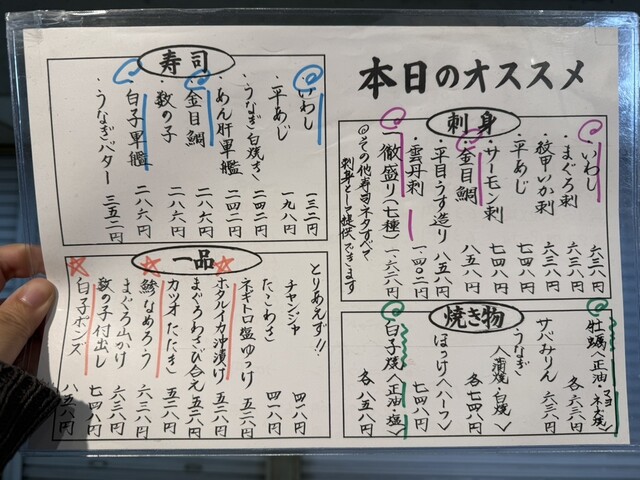 本日のオススメ
刺身
いわし 六三八円
・まぐろ刺 六三八円
・紋甲いか刺 六三八円
・平あじ 七四八円
・サーモン刺 七四八円
・金目鯛 八五八円
・平目うす造り 八五八円
・雲丹刺 一、四〇二円
・徹盛り(七種) 一、六二八円
◎その他寿司ネタすべて
刺身として提供できます
焼き物
牡蠣〈正油・ネギマヨ焼〉 各六三八円
サバみりん 六三八円
・うなぎ〈蒲焼・白焼〉 各七四八円
・ほっけ〈ハーフ〉 七四八円
・白子焼〈正油・塩〉 各八五八円
寿司
・いわし 一三二円
・平あじ 一九八円
・うなぎ白焼き 二四二円
あん肝軍艦 二四二円
・金目鯛 二八六円
・数の子 二八六円
・白子軍艦 二八六円
・うなぎバター 三五二円
一品
とりあえず!!
チャンジャ 四一八円
たこわさ 四一八円
ネギトロ塩ゆっけ 五二八円
ホタルイカ沖漬け 五二八円
まぐろわさび合え 五二八円
カツオたたき 五二八円
鯵なめろう 六三八円
まぐろ山かけ 六三八円
数の子付出し 七四八円
白子ポンズ 八五八円